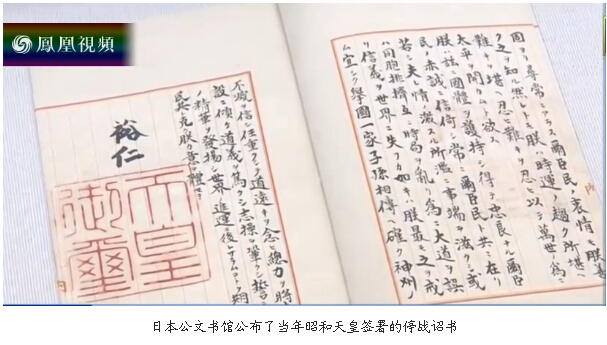 鳳凰視頻
固ヨリ尋常ニアラス爾臣民ノ衷情モ朕善
ク之ヲ知ル然レトモ朕ハ時運ノ趨ク所堪ヘ
難キヲ堪ヘ忍ヒ難キヲ忍ヒ以テ萬世ノ為ニ
太平ヲ開カムト欲ス
朕ハ茲ニ國體ヲ護持シ得テ忠良ナル爾臣
民ノ赤誠ニ信倚シ常ニ爾臣民ト共ニ在リ
若シ夫レ情ノ激スル所濫ニ事端ヲ滋クシ或
ハ同胞排擠互ニ時局ヲ亂リ為ニ大道ヲ誤
リ信義ヲ世界ニ失フカ如キハ朕最モ之ヲ戒
ム宜シク擧國一家子孫相傳ヘ確ク神州ノ
不滅ヲ信シ任重クシテ道遠キヲ念ヒ總力ヲ將
設ニ傾ケ道義ヲ篤クシ志操ヲ鞏クシ誓
ノ精華ヲ發揚シ世界ノ進運ニ後レサラムコトヲ期
民其レ克ク朕カ意ヲ體セヨ
裕仁
天皇
御璽
内
日本公文书馆公布了当年昭和天皇签署的停战诏书